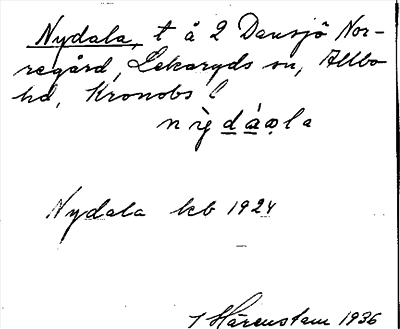 Nydala, t å 2 Dansjö Nor-
regård, Lekaryds sn, Allbo
hd, Kronobs l
Nydala kb 1924
Hårenstam 1936